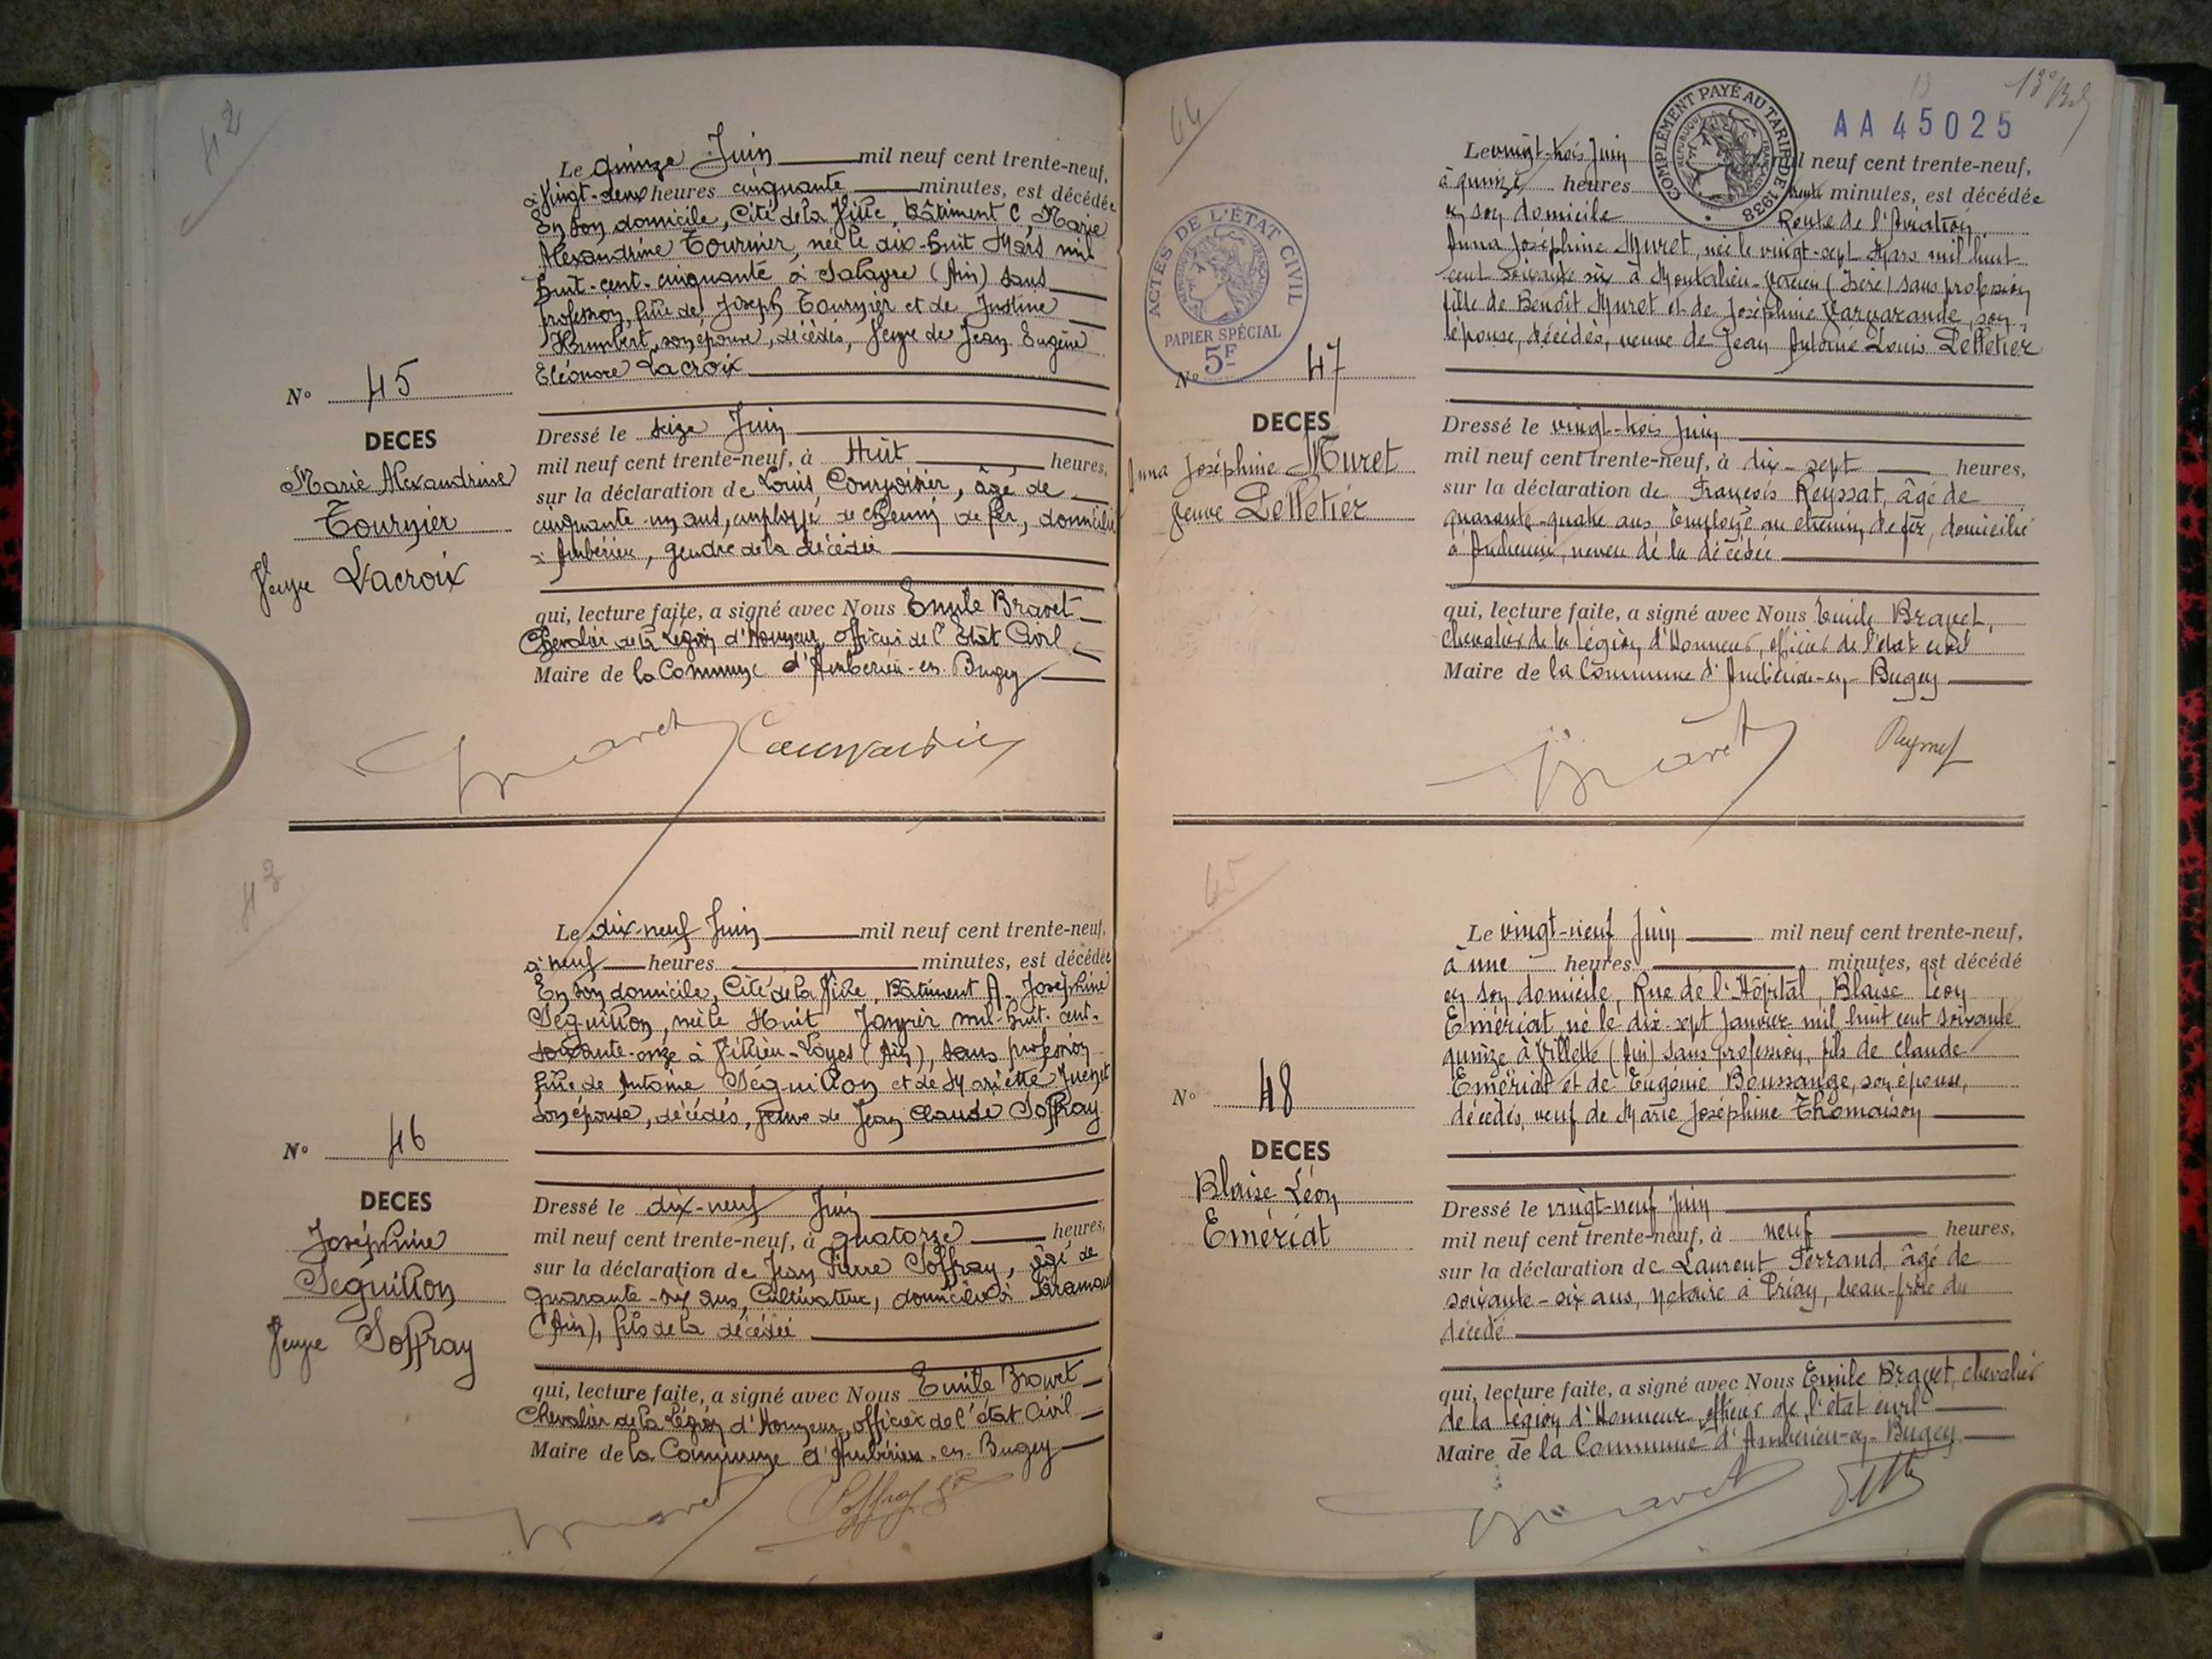 42
Le quinze Juin mil neuf cent trente-neuf,
à Vingt-deux heures cinquante minutes, est décédée
En son domicile, Cité de la Ville, bâtiment C, Marie
Alexandrine Tournier, née le dix-huit Mars mil
huit-cent-cinquante à Salayre (Ain) sans
profession, fille de Joseph Tournier et de Justine
Humbert, son épouse, décédés, Veuve de Jean Eugène
Eléonore Lacroix
N° 45
DECES
Marie Alexandrine
Tournier
Veuve Lacroix
Dressé le seize Juin
mil neuf cent trente-neuf, à Huit heures,
sur la déclaration de Louis, âgé de
cinquante-un ans, employé de chemin de fer, domicilié
à Ambérieu, gendre de la décédée
qui, lecture faite, a signé avec Nous Emile Bravet
Chevalier de la Légion d'Honneur, officier de l'Etat Civil
Maire de la Commune d'Ambérieu-en-Bugey
43
Le dix-neuf Juin mil neuf cent trente-neuf,
à neuf heures minutes, est décédée
En son domicile, Cité de la Ville, Bâtiment A, Joséphine
Séguillon, née le Huit Janvier mil-huit-cent-
soixante-onze à Villieu-Loyes (Ain), sans profession
fille de Antoine Séguillon et de Mariette
son épouse, décédés, veuve de Jean Claude Joffray
N° 46
DECES
Joséphine
Séguillon
Veuve Joffray
Dressé le dix-neuf Juin
mil neuf cent trente-neuf, à quatorze heures,
sur la déclaration de Jean Pierre Joffray, âgé de
quarante-un ans, Cultivateur, domicilié à
(Ain), fils de la décédée
qui, lecture faite, a signé avec Nous Emile Bravet
Chevalier de la Légion d'Honneur, officier de l'état Civil
Maire de la Commune d'Ambérieu-en-Bugey
44
AA 45025
COMPLÉMENT PAYÉ AU TARIF DE 1938
RÉPUBLIQUE FRANÇAISE
Le vingt-trois Juin mil neuf cent trente-neuf,
à quinze heures trente minutes, est décédée
en son domicile Route de l'Aviation
Anna Joséphine Muret, née le vingt-sept Mars mil huit
cent soixante six à Montalieu-Vercieu (Isère) sans profession
fille de Benoît Muret et de Joséphine Varvarande, son
épouse, décédés, veuve de Jean Antoine Louis Pelletier
ACTES DE L'ÉTAT CIVIL
PAPIER SPÉCIAL
5F
N° 47
DECES
Anna Joséphine Muret
Veuve Pelletier
Dressé le vingt-trois Juin
mil neuf cent trente-neuf, à dix-sept heures,
sur la déclaration de François Reyssat, âgé de
quarante-quatre ans Employé au chemin de fer, domicilié
à Ambérieu, neveu de la décédée
qui, lecture faite, a signé avec Nous Emile Bravet,
chevalier de la Légion d'Honneur, officier de l'état civil
Maire de la Commune d'Ambérieu-en-Bugey
45
Le vingt-neuf Juin mil neuf cent trente-neuf,
à une heures minutes, est décédé
en son domicile, Rue de l'Hôpital, Blaise Léon
Emériat, né le dix-sept Janvier mil huit cent soixante
quinze à Villette (Ain) sans profession, fils de Claude
Emériat et de Eugénie Boussange, son épouse,
décédés, veuf de Marie Joséphine Thomaison
N° 48
DECES
Blaise Léon
Emériat
Dressé le vingt-neuf Juin
mil neuf cent trente-neuf, à neuf heures,
sur la déclaration de Laurent Ferrand, âgé de
soixante-six ans, notaire à Priay, beau-frère du
décédé
qui, lecture faite, a signé avec Nous Emile Bravet, chevalier
de la Légion d'Honneur, officier de l'état civil
Maire de la Commune d'Ambérieu-en-Bugey